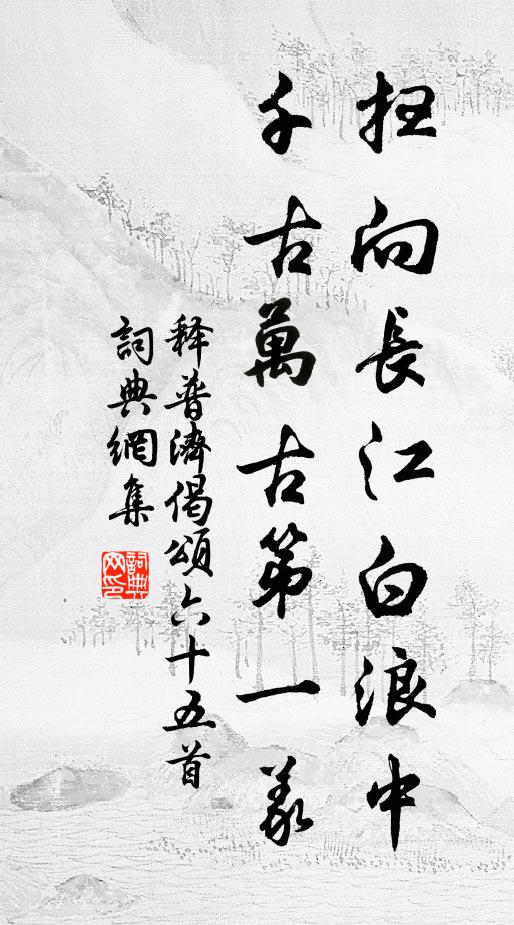 抂向長江白浪中
千古萬古第一義
釋普濟偈頌六十五首
詞典網集
詞典網印